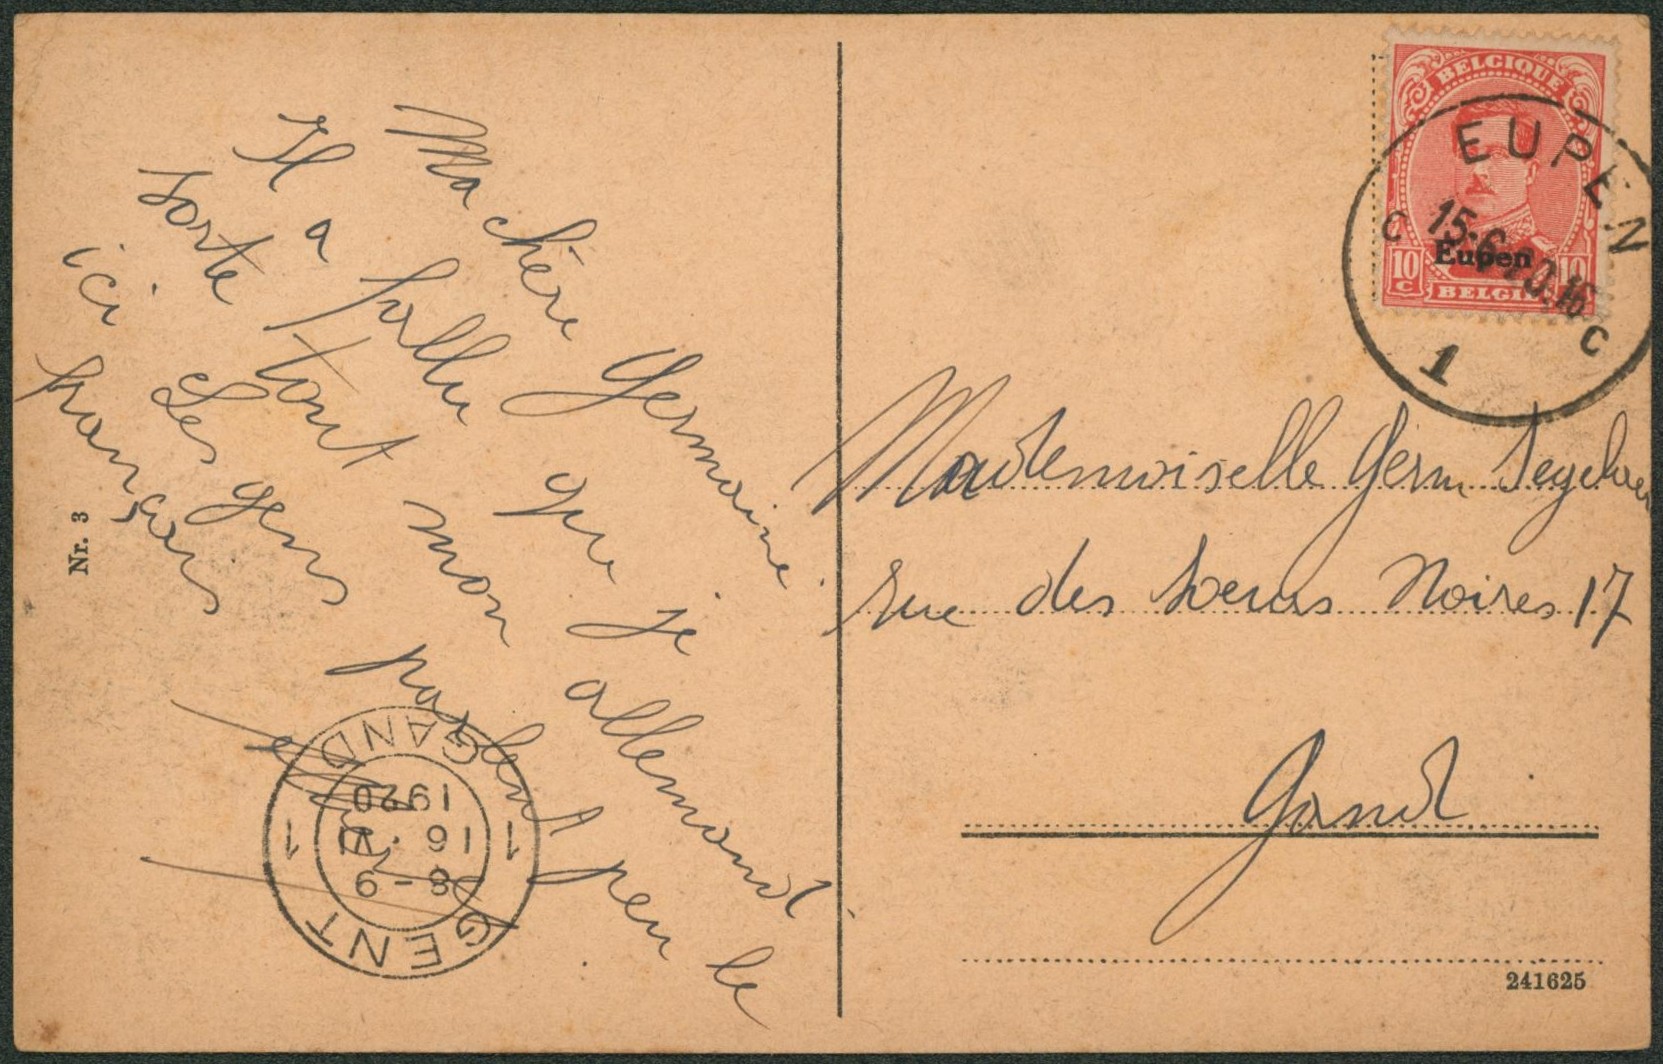 Ma chère Germaine
Il a fallu que je
sorte tout mon allemand
ici Les gens parlent peu le
français
Nr. 3
GENT 1
8-9
16.VI
1920
GAND 1
BELGIQUE
EUPEN
15-6-20.16
C C
1
Eupen
10 C 10
BELGIË
Mademoiselle Germ
rue des Soeurs Noires 17
Gand
241625